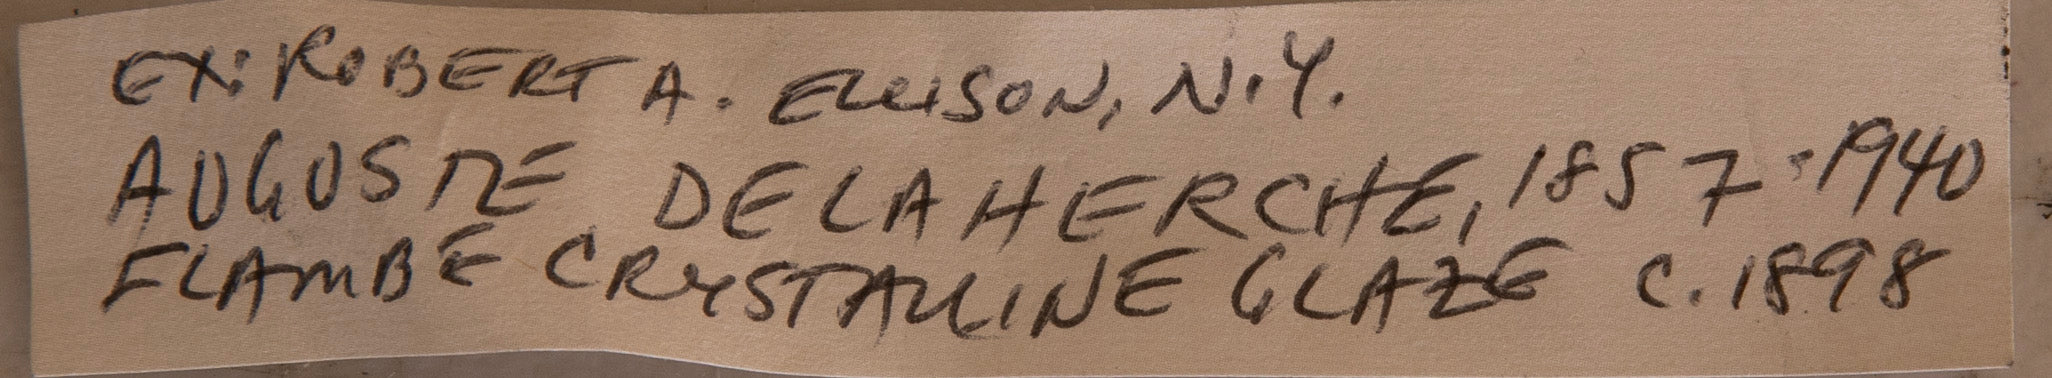 EX: ROBERT A. ELLISON, N.Y.
AUGUSTE DELAHERCHE, 1857-1940
FLAMBE CRYSTALLINE GLAZE C. 1898